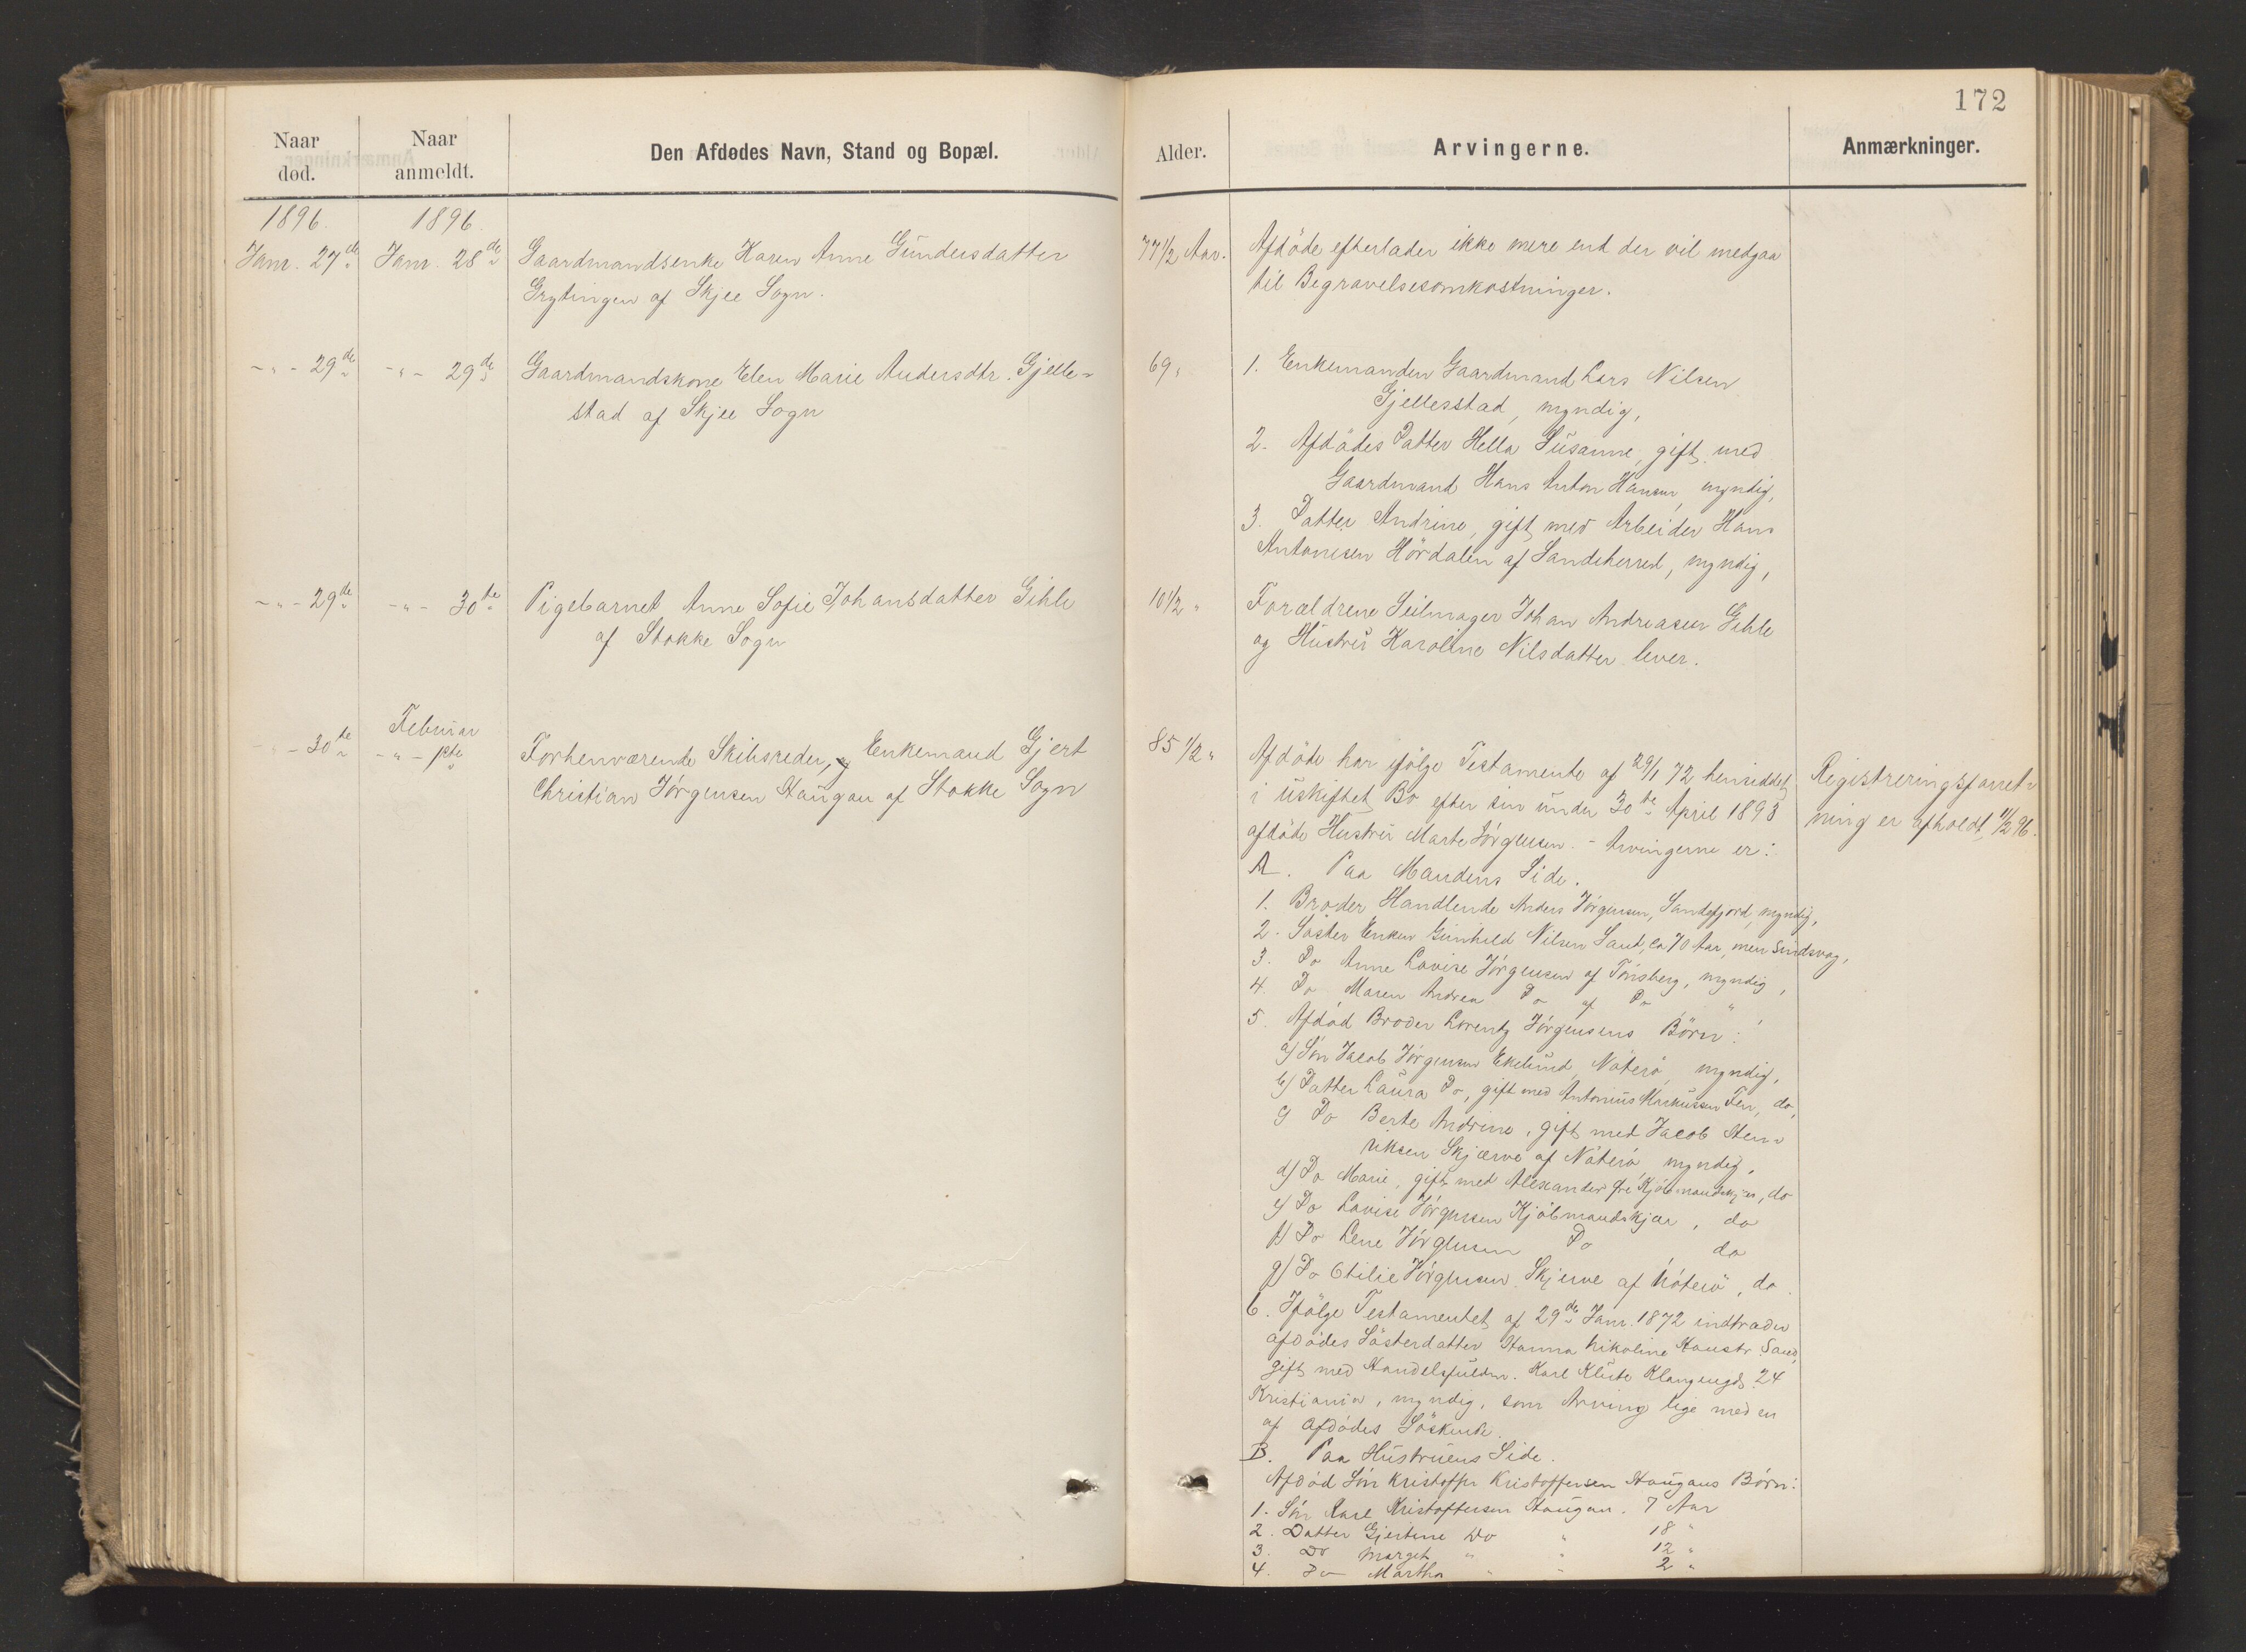 172
Naar død.
Naar anmeldt.
Den Afdødes Navn, Stand og Bopæl.
Alder.
Arvingerne.
Anmærkninger.
1896.
1896
Janr. 27de
Janr. 28de
Gaardmandsenke Karen Anne Gundersdatter
Grytingen af Skjee Sogn.
77 1/2 Aar.
Afdöde efterlader ikke mere end der vil medgaa
til Begravelsesomkostninger.
-"- 29de
-"- 29de
Gaardmandskone Elen Marie Andersdtr. Gjelle-
stad af Skjee Sogn
69 "
1. Enkemanden Gaardmand Lars Nilsen
Gjellesstad, myndig,
2. Afdödes Datter Hella Susanne, gift med
Gaardmand Hans Anton Hansen, myndig,
3. Datter Andrine, gift med Arbeider Hans
Antonesen Hördalen af Sandeherred, myndig,
-"- 29de
-"- 30te
Pigebarnet Anne Sofie Johansdatter Gihle
af Stokke Sogn
10 1/2 "
Forældrene Seilmager Johan Andreasen Gihle
og Hustru Karoline Nilsdatter lever.
-"- 30te
Februar
-"- 1ste
Forhenværende Skibsreder, og Enkemand Gjert
Christian Jörgensen Haugan af Stokke Sogn
85 1/2 "
Afdöde har ifölge Testamente af 29/1 72 hensiddet
i uskiftet Bo efter sin under 30te April 1893
afdöde Hustru Marte Jörgensen. - Arvingerne er:
Registreringsforret-
ning er afholdt 11/2 96.
A. Paa Mandens Side.
1. Broder Handlende Anders Jörgensen, Sandefjord, myndig,
2. Söster Enken Gunhild Nilsen Sand, ca 70 Aar, men Sindsvag,
3. Do Anne Lovise Jörgensen af Tönsberg, myndig,
4. Do Maren Andrea Do af Do " ,
5. Afdöd Broder Lorentz Jörgensens Börn:
a) Sön Jacob Jörgensen Ekelund, Nöterö, myndig,
b) Datter Laura Do, gift med Antonius Markussen Fen, do,
c) Do Berte Andrine, gift med Jacob Hen-
riksen Skjærve af Nöterö, myndig,
d) Do Marie, gift med Alexander Kjöbmandskjær, do
e) Do Lovise Jörgensen Kjöbmandskjær, do
f) Do Lene Jörgensen Do do
g) Do Otilie Jörgensen Skjerve af Nöterö, do.
6. Ifölge Testamentet af 29de Janr. 1872 indtræder
afdödes Sösterdatter Hanna Nikoline Hansdtr. Sand,
gift med Handelsfuldm. Karl Klute 24
Kristiania, myndig, som Arving lige med en
af afdödes Söskende.
B. Paa Hustruens Side.
Afdöd Sön Kristoffer Kristoffersen Haugans Börn:
1. Sön Karl Kristoffersen Haugan. 7 Aar
2. Datter Gjertine Do " 18 "
3. Do Marget " " 12 "
4. Do Martha " " 2 "